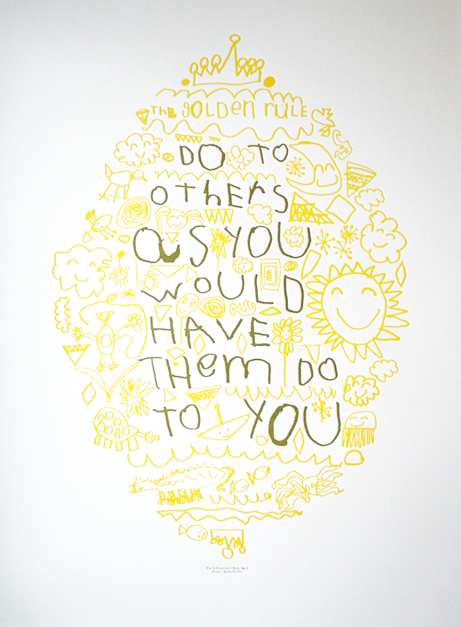 THE gOLDEN rULE
DO TO
OThErS
aS YOU
WOULD
HAVE
THem DO
TO YOU